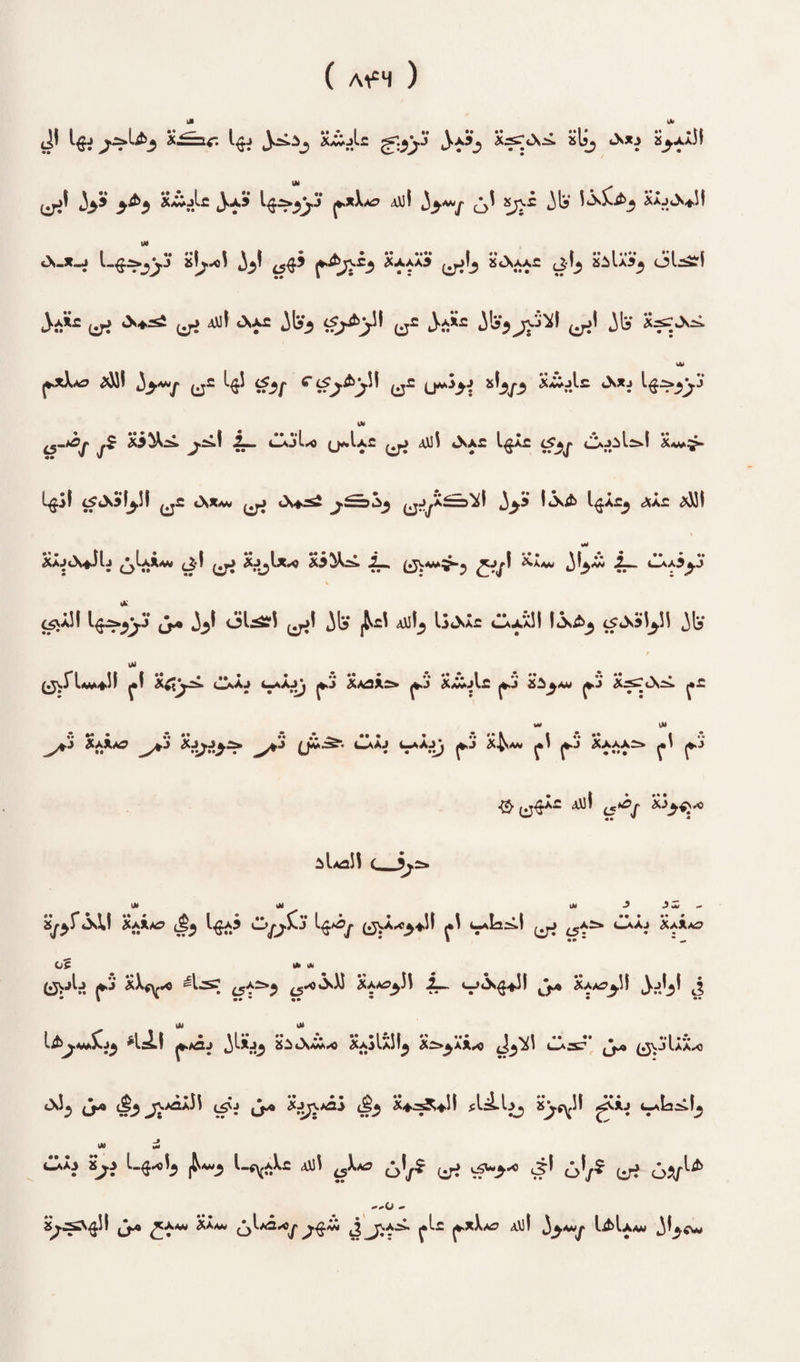 ( ٨٤٦ )
النبوة بعد وفاة خديجة وقبل تزويج عايشة ودخل بها بمكّة وهاجر بها الي
المدينة وهكذا قال غيره ان رسول الله صلعم تزوجها قبل عايشة وهو قول ابن
اسحاق وقتادة وابي عبيدة وابن قتيبة وغيرهم فهي اول امراة تزوجها بعد
خديجة قال ابن الاثير وقال عقيل عن الزهري وقال عبد الله بن محمد بن عقيل
تزوجها بعد عايشة ورواه يونس عن الزهري، روي لها عن رسول الله صلعم
خمسة احاديث روي عنها عبد الله بن عباس ماتت في اخر خلافة عمر رضي
الله عنه وعنها هذا قول الاكثرين وذكر محمد بن سعد عن الواقدي انها
توفيت في شوال سنة اربع وخمسين في خلافة معاوية بن ابي سفيان بالمدينة
قال الواقدي وهذا الثبت عندنا والله اعلم قال ابن اسحاق اول من تزوجها النبي
عم خديجة ثم سودة ثم عايشة ثم حفصة ثم زينب بنت خزيمة ام المساكين
ثم ام حبيبة ثم ام سلمة ثم زينب بنت جحش ثم جويرية ثم صفية ثم
ميمونة رضي الله عنهن
حرف الصاد
صفية بنت حيي بن اخطب ام المومنين رضها تكررت فيها وفي صفية المذكورة
في اوايل الوصية من المهذب في الوصية للذمي وحيي بحاء مهملة ثم يايين
مثناتين من تحت الاولي مفتوحة والثانية مشددة ويقال بضم الحاء وبكسرها
واخطب بفتح الهمزة وبالخاء المعجمة وهي نضيرية من بني النضير وهي من ولد
هارون بن عمران اخي موسي بن عمران صلي الله عليهما وسلم وامها برة بنت
سموال سباها رسول الله صلعم عام خيبر في شهر رمضان سنة سبع من الهجرة